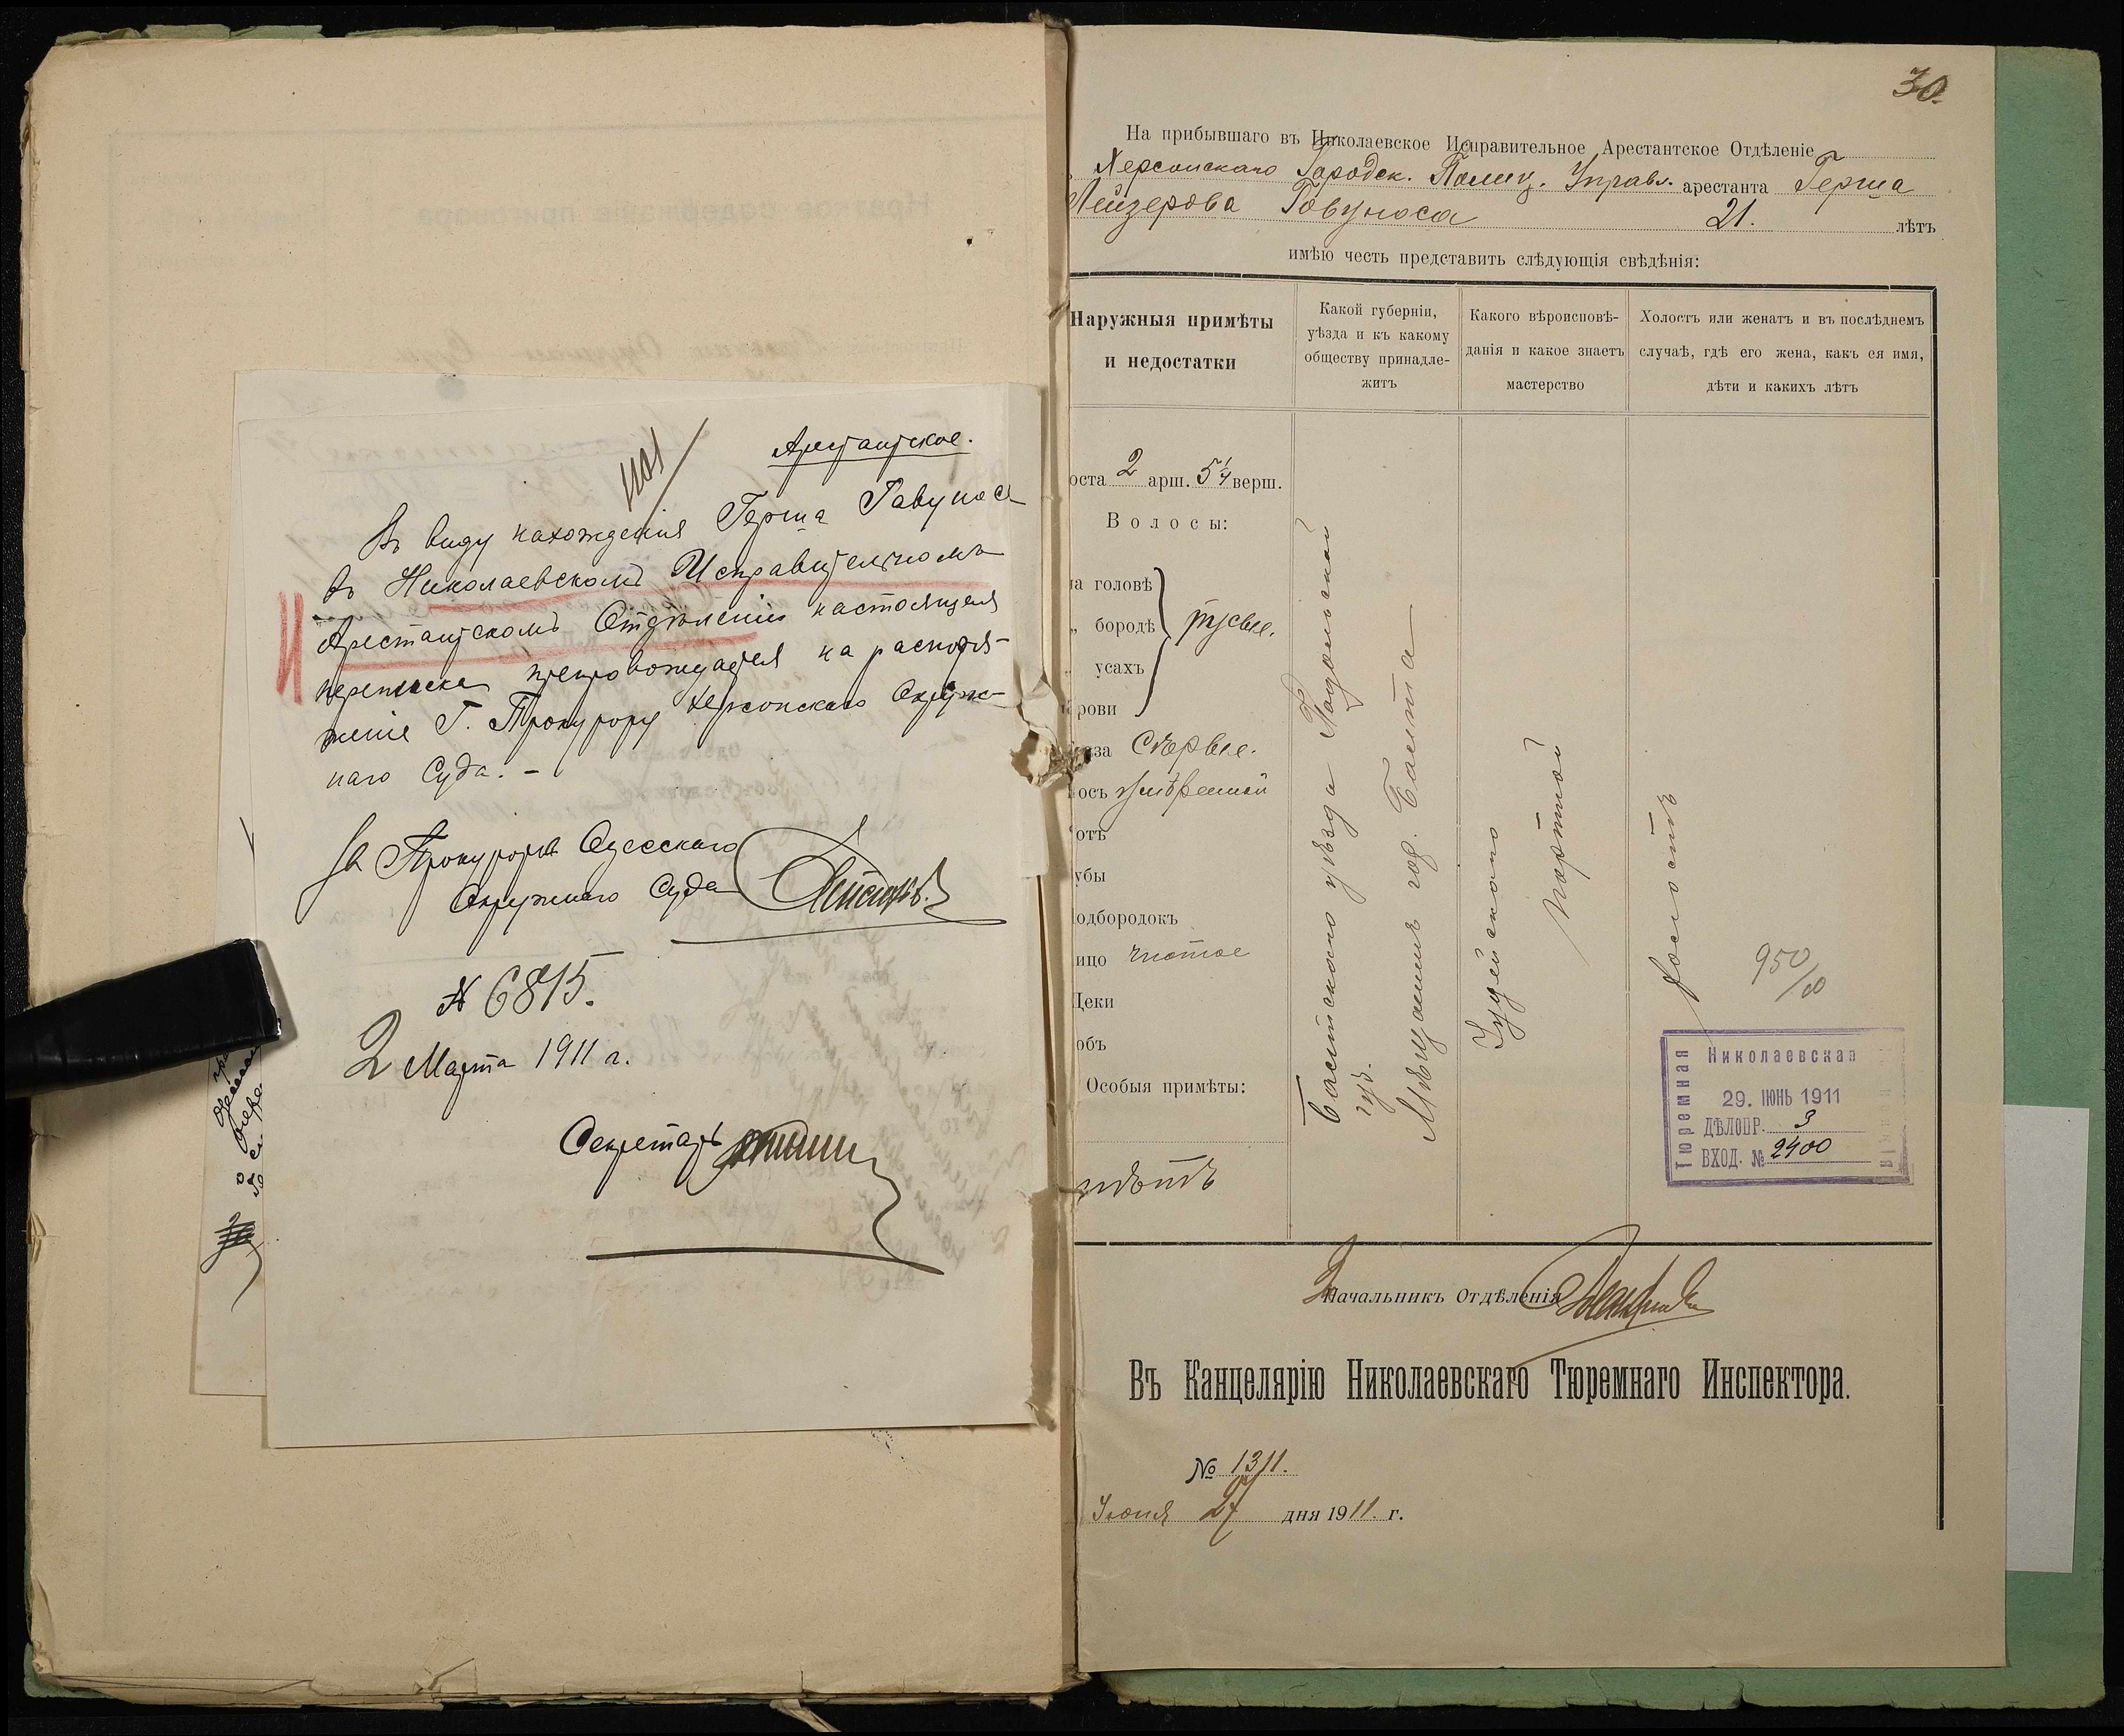 Арестантское.
1101
Въ виду нахожденія Герша Гавуноса
въ Николаевскомъ Исправительномъ
Арестантскомъ Отдѣленіи настоящая
переписка препровождается на распоря-
женіе Г. Прокурору Херсонскаго Окруж-
наго Суда. –
За Прокурора Одесскаго
Окружнаго Суда
№ 6815.
2 Марта 1911 г.
Секретарь
30.
На прибывшаго въ Николаевское Исправительное Арестантское Отдѣленіе
Херсонскаго Городск. Полиц. Управл. арестанта Герша
Лейзерова Говуноса 21. лѣтъ
имѣю честь представить слѣдующія свѣдѣнія:
Наружныя примѣты
и недостатки
Какой губерніи,
уѣзда и къ какому
обществу принадле-
житъ
Какого вѣроисповѣ-
данія и какое знаетъ
мастерство
Холостъ или женатъ и въ послѣднемъ
случаѣ, гдѣ его жена, какъ ея имя,
дѣти и какихъ лѣтъ
оста 2 арш. 5¼ верш.
Волосы:
на головѣ
„ бородѣ русые.
усахъ
рови
за Сѣрые.
осъ умѣренный
отъ
убы
одбородокъ
ицо чистое
Щеки
объ
Особыя примѣты:
нѣтъ
Балтскаго уѣзда Подольской
губ.
Мѣщанинъ гор. Балта
Іудейскаго
портной
холостъ
950/00
Николаевская
Тюремная
29. ІЮНЬ 1911
ДѢЛОПР. 3
ВХОД. № 2400
Начальникъ Отдѣленія
Въ Канцелярію Николаевскаго Тюремнаго Инспектора.
№ 1311.
Іюня 27 дня 1911. г.